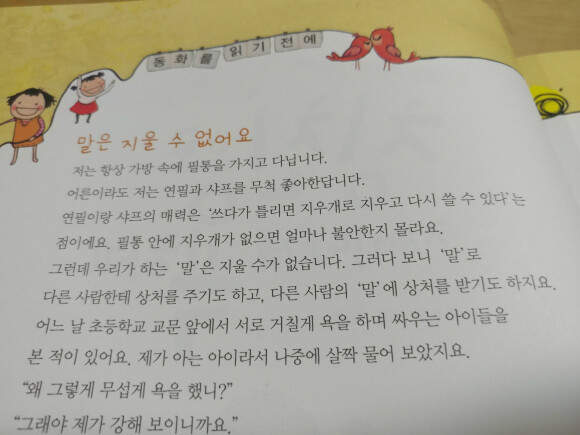 동화를 읽기 전에
말은 지울 수 없어요
저는 항상 가방 속에 필통을 가지고 다닙니다.
어른이라도 저는 연필과 샤프를 무척 좋아한답니다.
연필이랑 샤프의 매력은 ‘쓰다가 틀리면 지우개로 지우고 다시 쓸 수 있다’는
점이에요. 필통 안에 지우개가 없으면 얼마나 불안한지 몰라요.
그런데 우리가 하는 ‘말’은 지울 수가 없습니다. 그러다 보니 ‘말’로
다른 사람한테 상처를 주기도 하고, 다른 사람의 ‘말’에 상처를 받기도 하지요.
어느 날 초등학교 교문 앞에서 서로 거칠게 욕을 하며 싸우는 아이들을
본 적이 있어요. 제가 아는 아이라서 나중에 살짝 물어 보았지요.
“왜 그렇게 무섭게 욕을 했니?”
“그래야 제가 강해 보이니까요.”